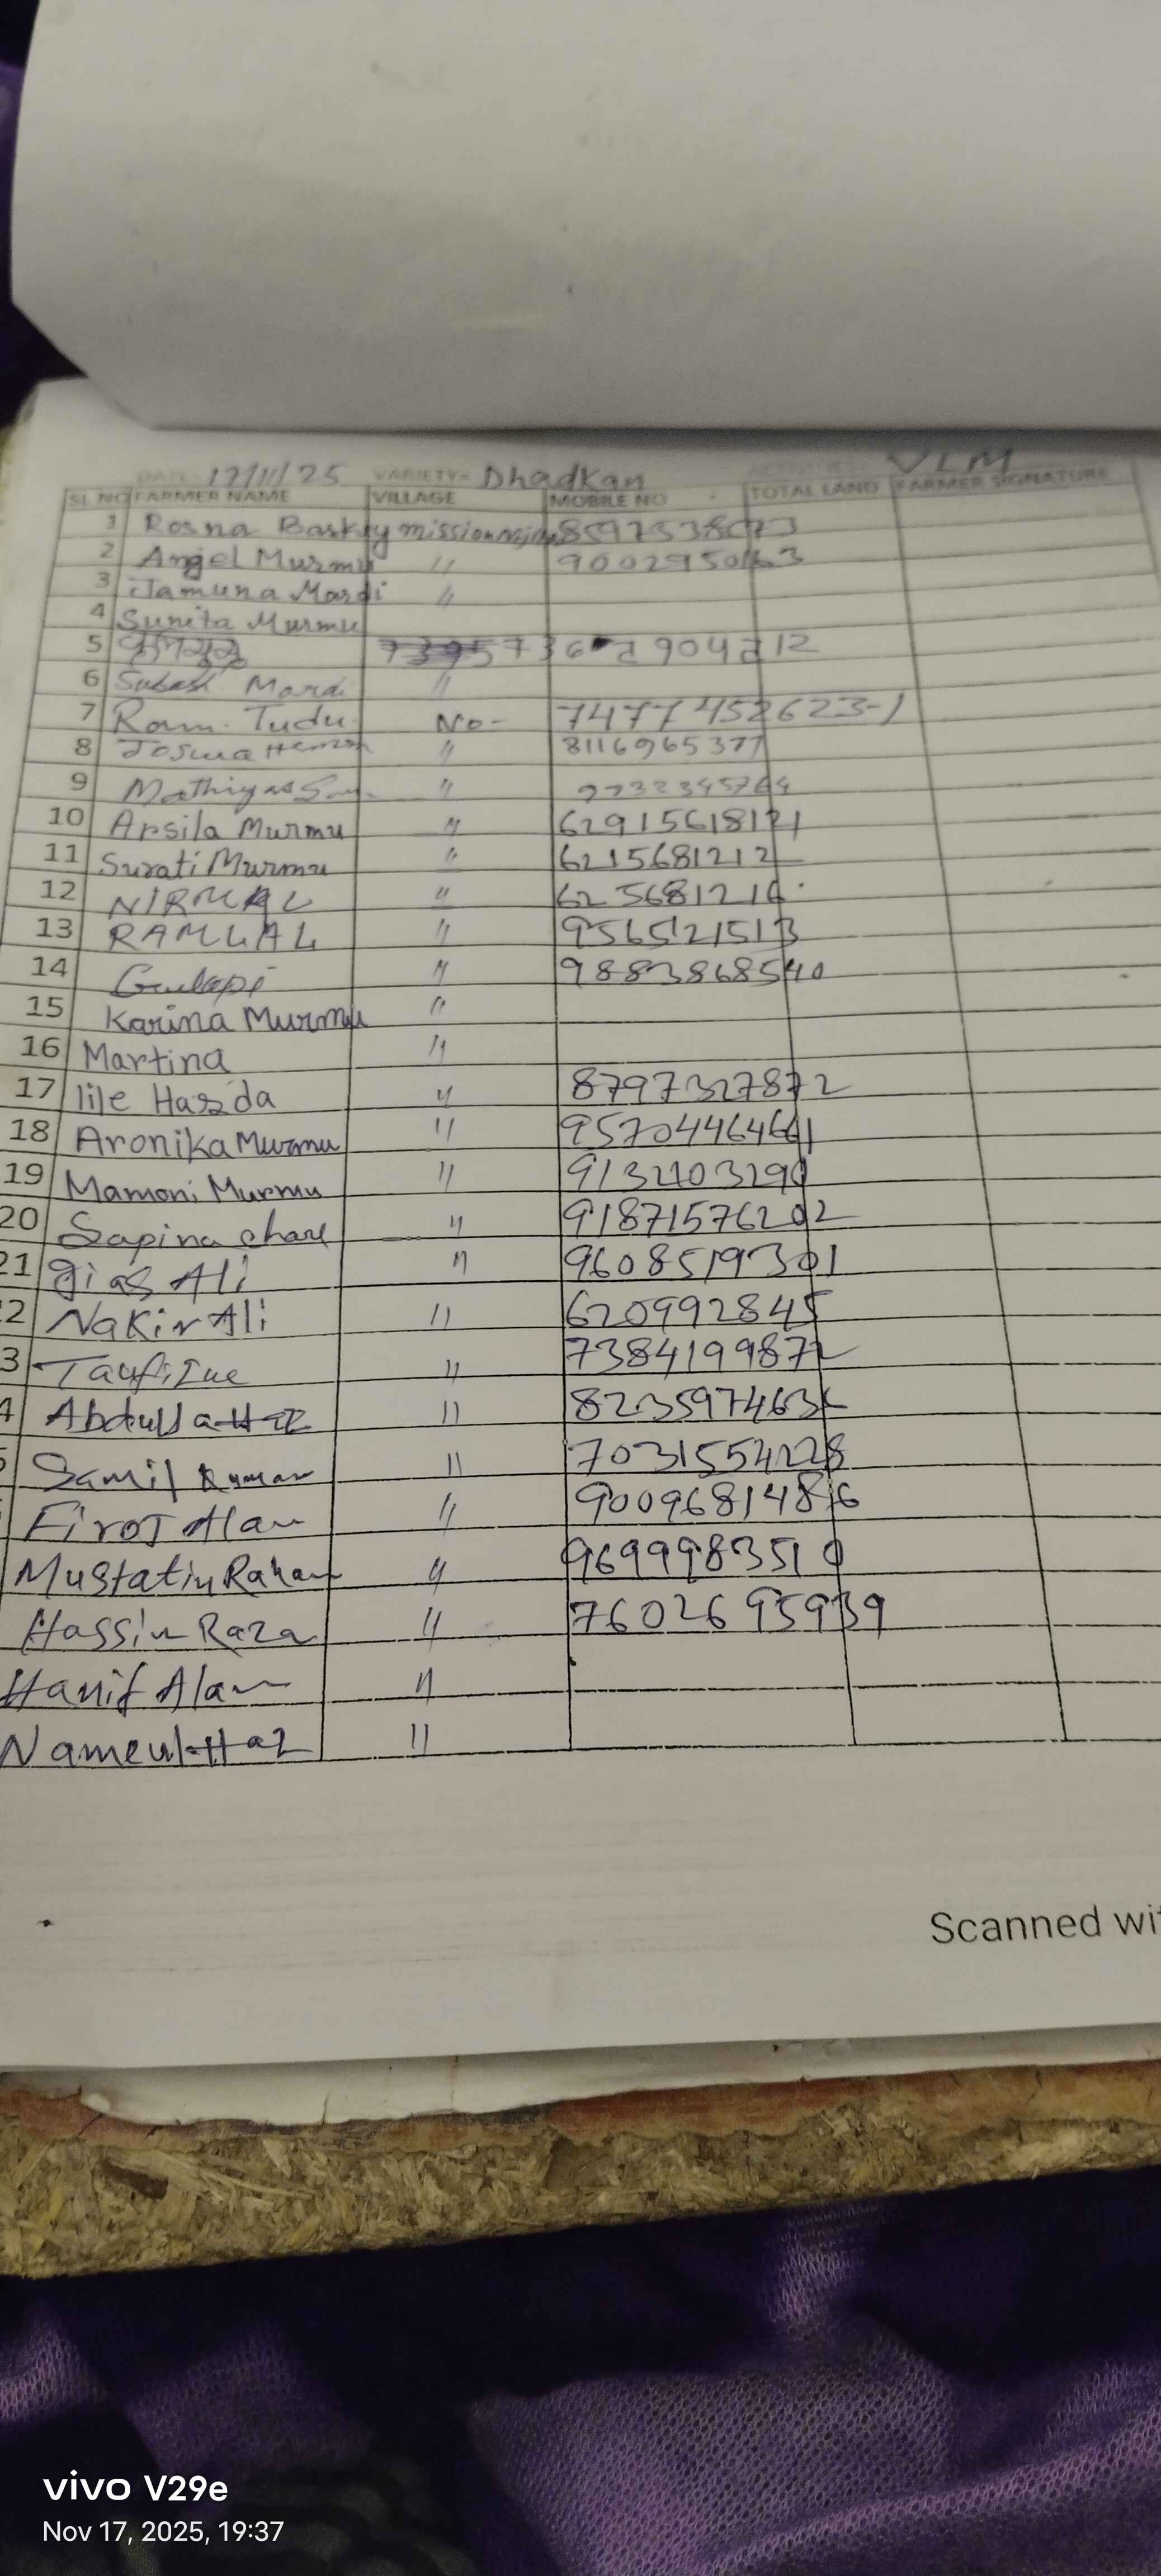 DATE- 17/11/25 VARIETY= Dhadkan VLM
SL NO FARMER NAME VILLAGE MOBILE NO TOTAL LAND FARMER SIGNATURE
1 Rosna Baskey mission
2 Angel Murmu "
3 Jamuna Mardi "
4 Sunita Murmu
5
6 Subash Mardi "
7 Ram. Tudu. No- 7477452623-1
8 Joswa "  8116965377
9 Mathiyas " 9732345764
10 Arsila Murmu " 62915618121
11 Surati Murmu " 6215681212
12 NIRMAL " 625681216
13 RAMLAL " 9565121513
14 Gulapi " 9883868540
15 Karina Murmu "
16 Martina "
17 lile Hasda " 8797327872
18 Aronika Murmu "
19 Mamoni Murmu " 9132403290
20 Sapina " 91871576202
21 Jias Ali " 9608519301
2 Nakir Ali " 620992845
3 " 7384199872
4 Abdulla "
5 Samil Kumar " 7031554228
Firoj Alam " 90096814816
Mustatin Raham " 9699983510
Hassin Raza " 7602695939
Hanif Alam "
Nameul Haz "
Scanned wit
vivo V29e
Nov 17, 2025, 19:37